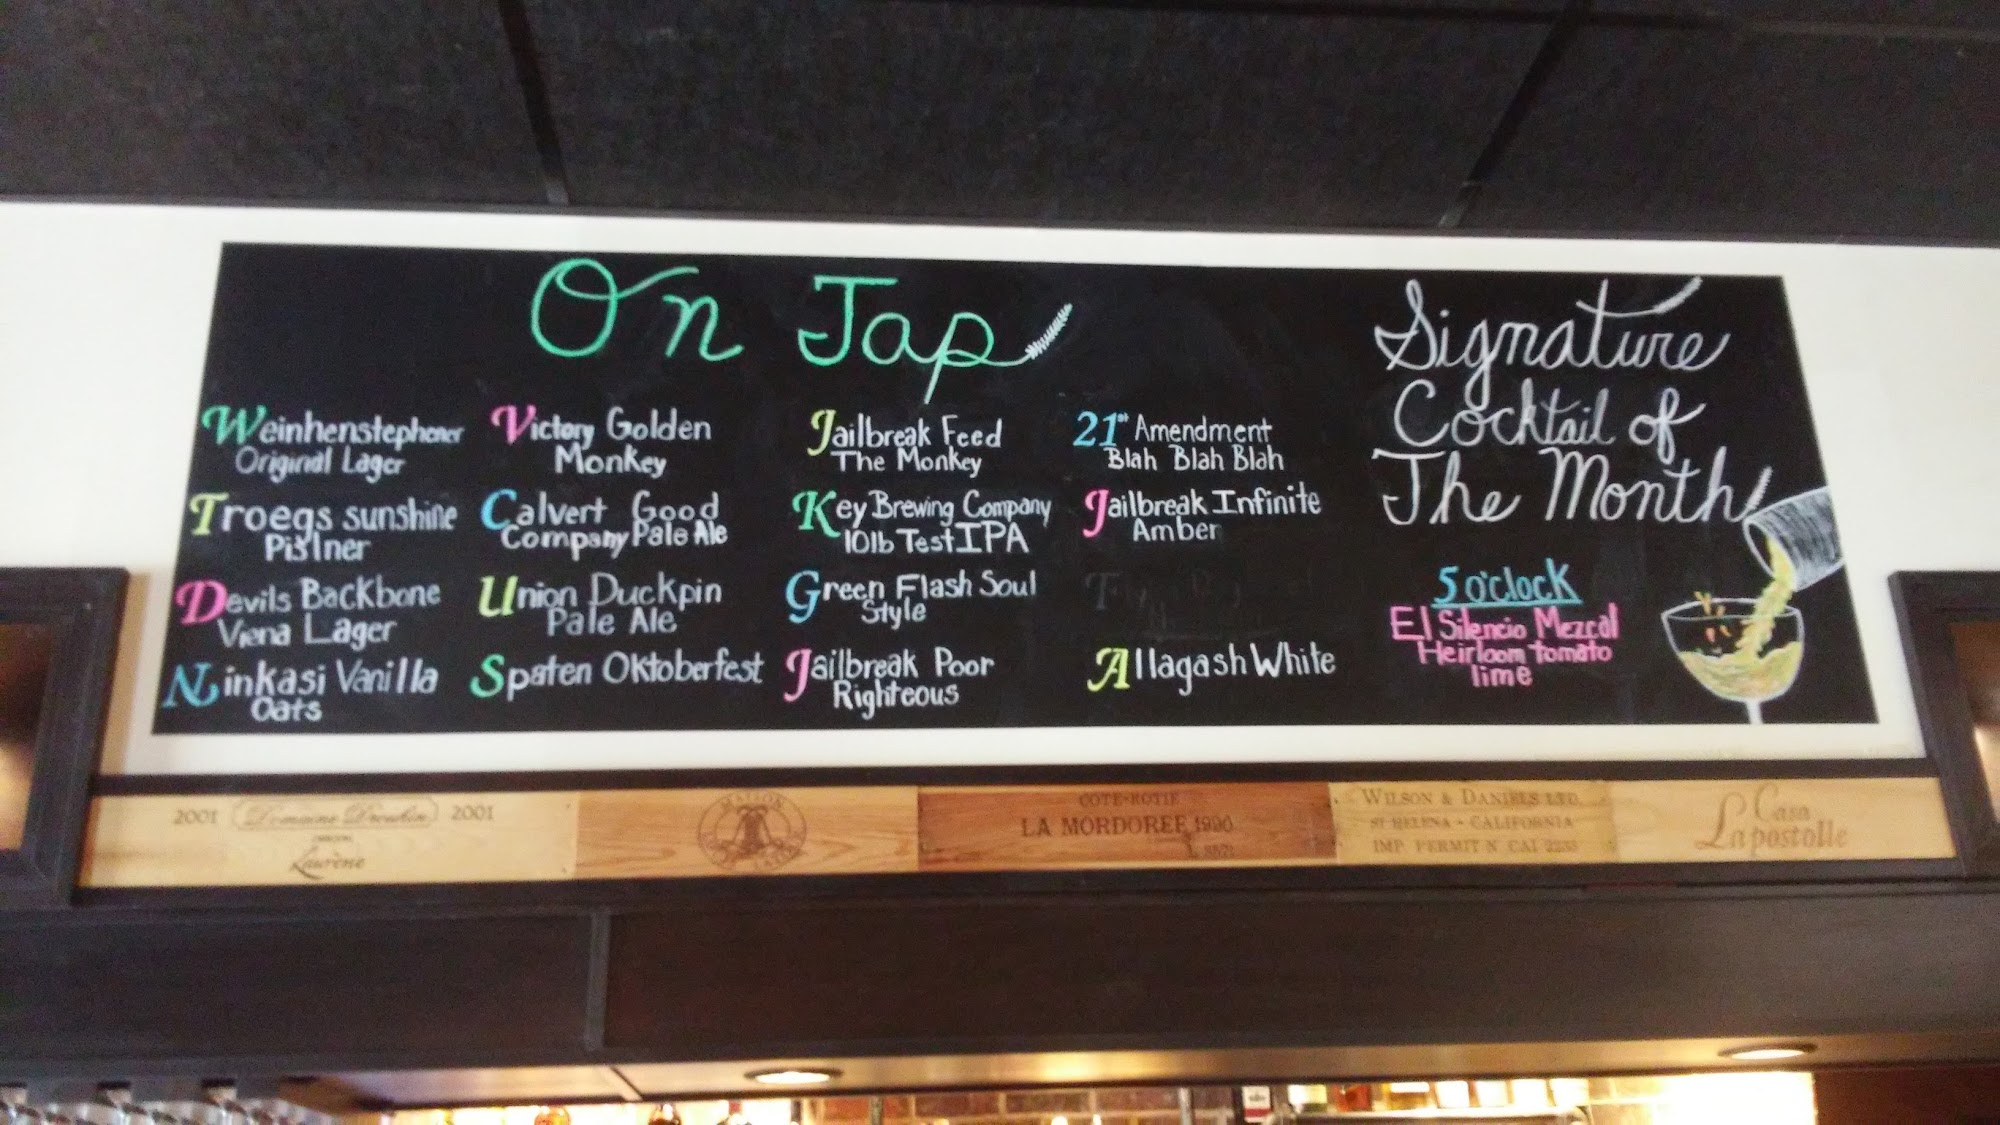 On Tap
Weinhenstephaner
Original Lager
Troegs sunshine
Pislner
Devils Backbone
Viena Lager
Ninkasi Vanilla
Oats
Victory Golden
Monkey
Calvert Good
Company Pale Ale
Union Duckpin
Pale Ale
Spaten Oktoberfest
Jailbreak Feed
The Monkey
Key Brewing Company
10lb Test IPA
Green Flash Soul
Style
Jailbreak Poor
Righteous
21st Amendment
Blah Blah Blah
Jailbreak Infinite
Amber
Allagash White
Signature
Cocktail of
The Month
5 o'clock
El Silencio Mezcal
Heirloom tomato
lime
2001 Domaine Drouhin 2001
Laurène
MAISON
COTE-ROTIE
LA MORDOREE 1990
WILSON & DANIELS LTD.
ST HELENA - CALIFORNIA
IMP. PERMIT N CAI 2238
Casa
Lapostolle